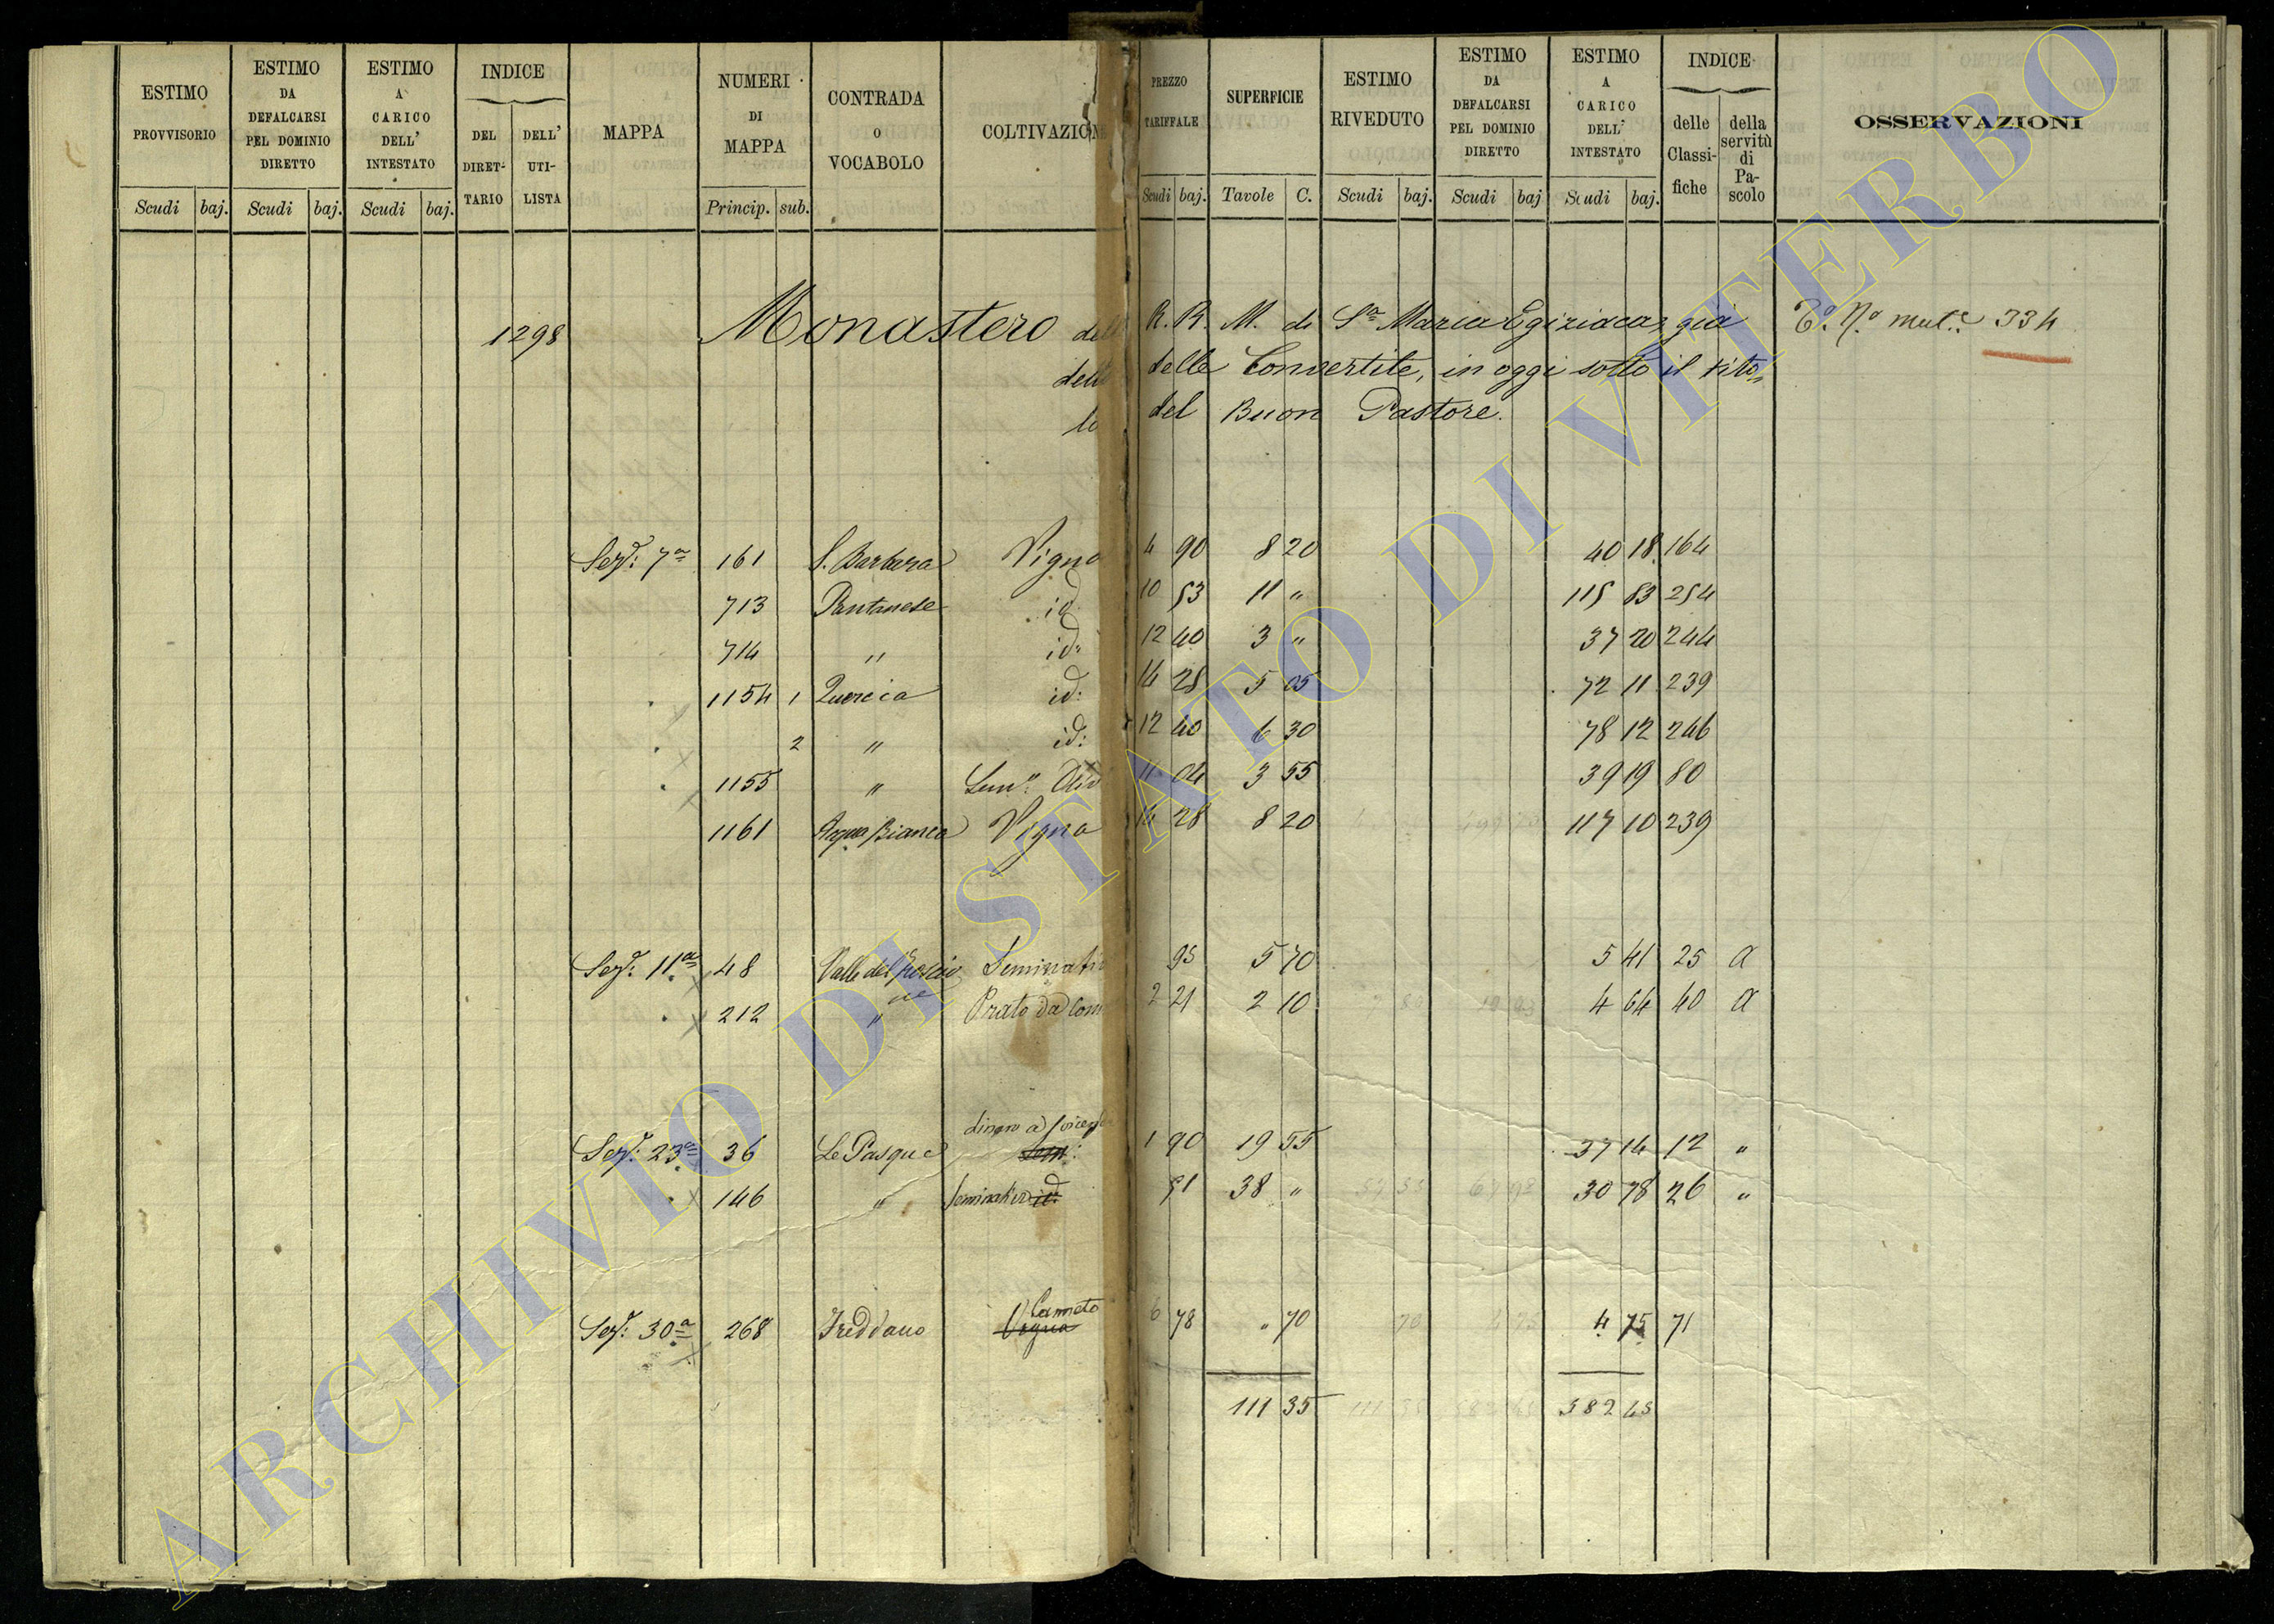 ESTIMO PROVVISORIO Scudi baj.
ESTIMO DA DEFALCARSI PEL DOMINIO DIRETTO Scudi baj.
ESTIMO A CARICO DELL' INTESTATO Scudi baj.
INDICE DEL DIRET-TARIO DELL' UTI-LISTA
MAPPA
NUMERI DI MAPPA Princip. sub.
CONTRADA O VOCABOLO
COLTIVAZION
PREZZO TARIFFALE Scudi baj.
SUPERFICIE Tavole C.
ESTIMO RIVEDUTO Scudi baj.
ESTIMO DA DEFALCARSI PEL DOMINIO DIRETTO Scudi baj
ESTIMO A CARICO DELL' INTESTATO Scudi baj.
INDICE delle Classi-fiche della servitù di Pa-scolo
OSSERVAZIONI
1298 Monastero del R. R. M. di S.a Maria Egiziaca, già mut.e 334
delle Convertite, in oggi sotto il tito
lo del Buon Pastore.
Sez.e 7a 161 S. Barbara Vigna 4 90 8 20 40 18 164
713 Pantanese id 10 53 11 " 115 83 254
714 " id: 12 40 3 " 37 20 244
1154 1 Quercia id: 14 28 5 05 72 11 239
2 " id: 12 40 6 30 78 12 246
1155 " Sem.o Oliv 11 04 3 55 39 19 80
1161 Acqua Bianca Vigna 14 28 8 20 117 10 239
Sez.e 11a 48 Valle del Seminati 95 5 70 5 41 25 a
212 " Prato da Com 2 21 2 10 4 64 40 a
Sez.e 23a 36 Le Pasque sem: 1 90 19 55 37 14 12 "
146 " Seminativo id: 81 38 " 30 78 26 "
Canneto
Sez.e 30a 268 Freddano Vigna 6 78 " 70 4 75 71
111 35 582 45
ARCHIVIO DI STATO DI VITERBO